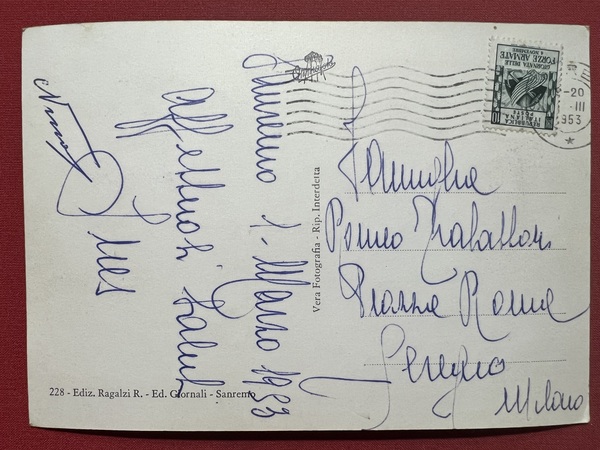 Sanremo 1- Marzo 1953
Affettuosi Saluti
Ines
Famiglia
Piazza Roma
Seregno
Milano
Vera Fotografia - Rip. Interdetta
228 - Ediz. Ragalzi R. - Ed. Giornali - Sanremo
REPUBBLICA
ITALIANA
GIORNATA DELLE
FORZE ARMATE
4 NOVEMBRE
-20
III
1953